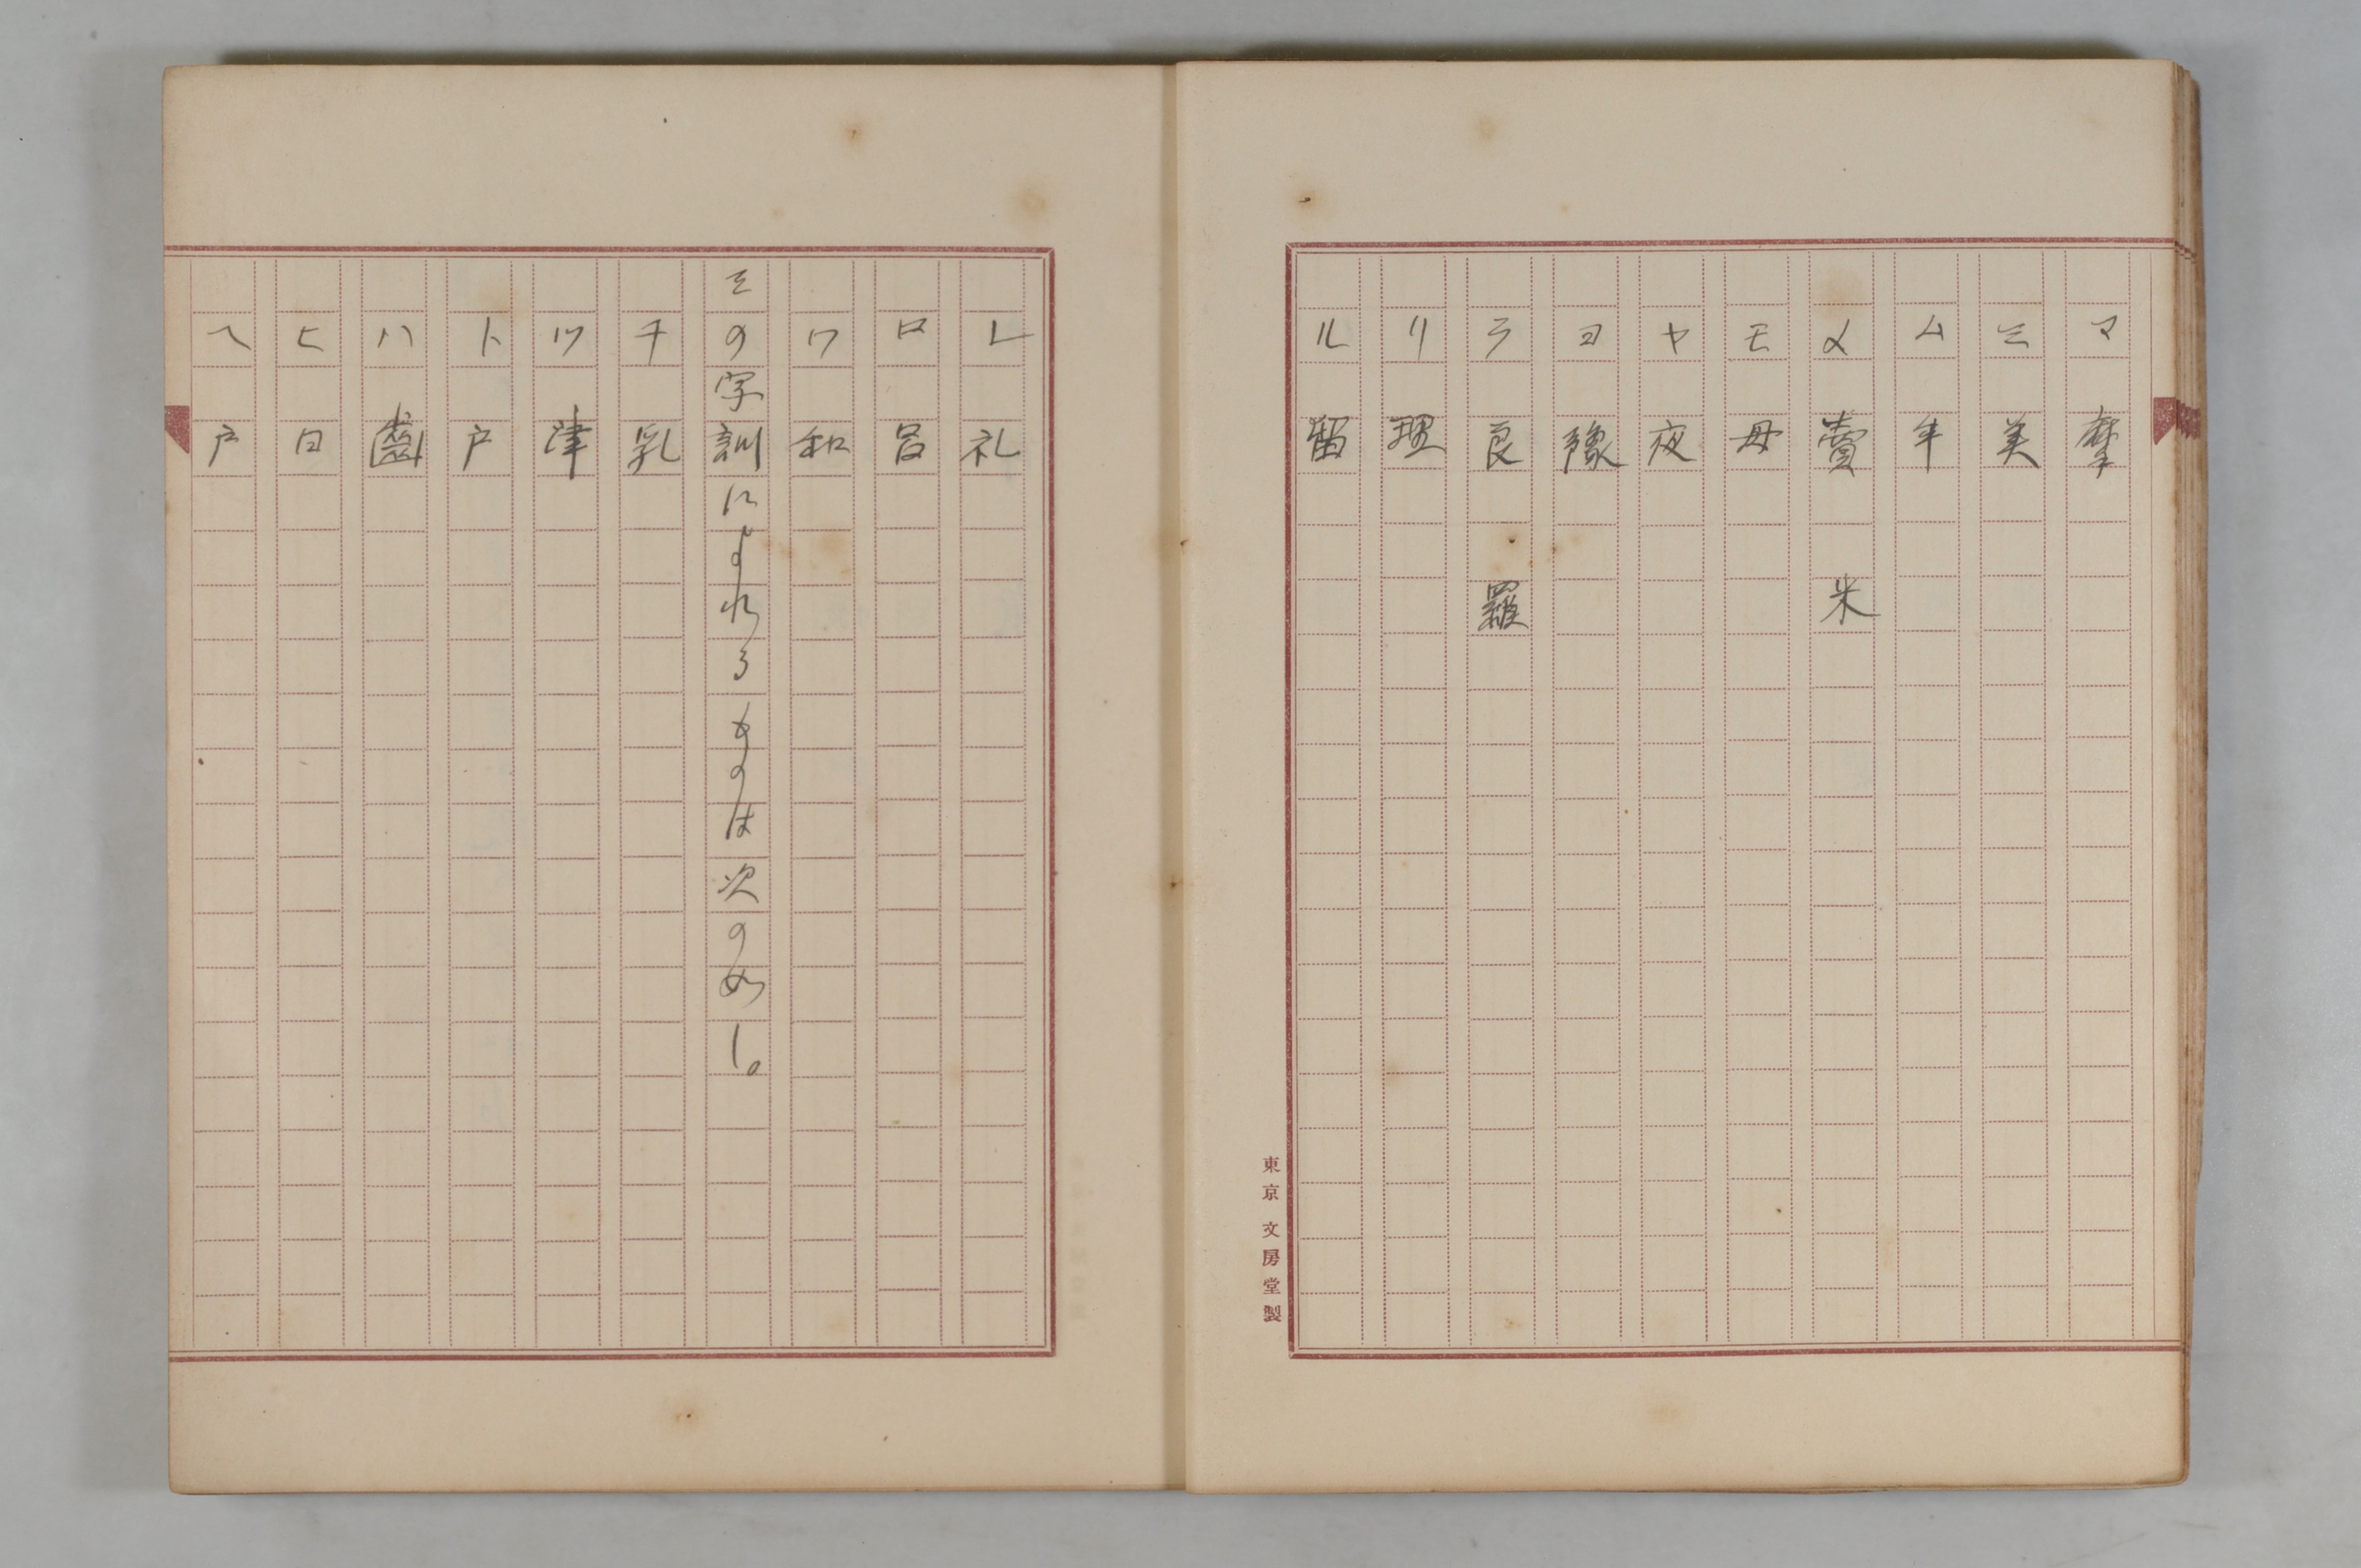 マ 摩
ミ 美
ム 牟
メ 賣 米
モ 母
ヤ 夜
ヨ 豫
ラ 良 羅
リ 理
ル 留
東京 文房堂製
レ 礼
ロ 呂
ワ 和
その字訓によれるものは次の如し。
チ 乳
ツ 津
ト 戸
ハ 齒
ヒ 日
ヘ 戸